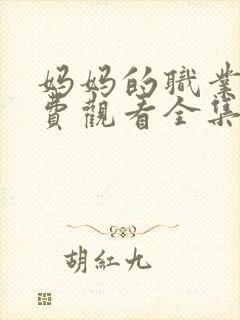 妈妈的職業
費觀看全集
胡紅九